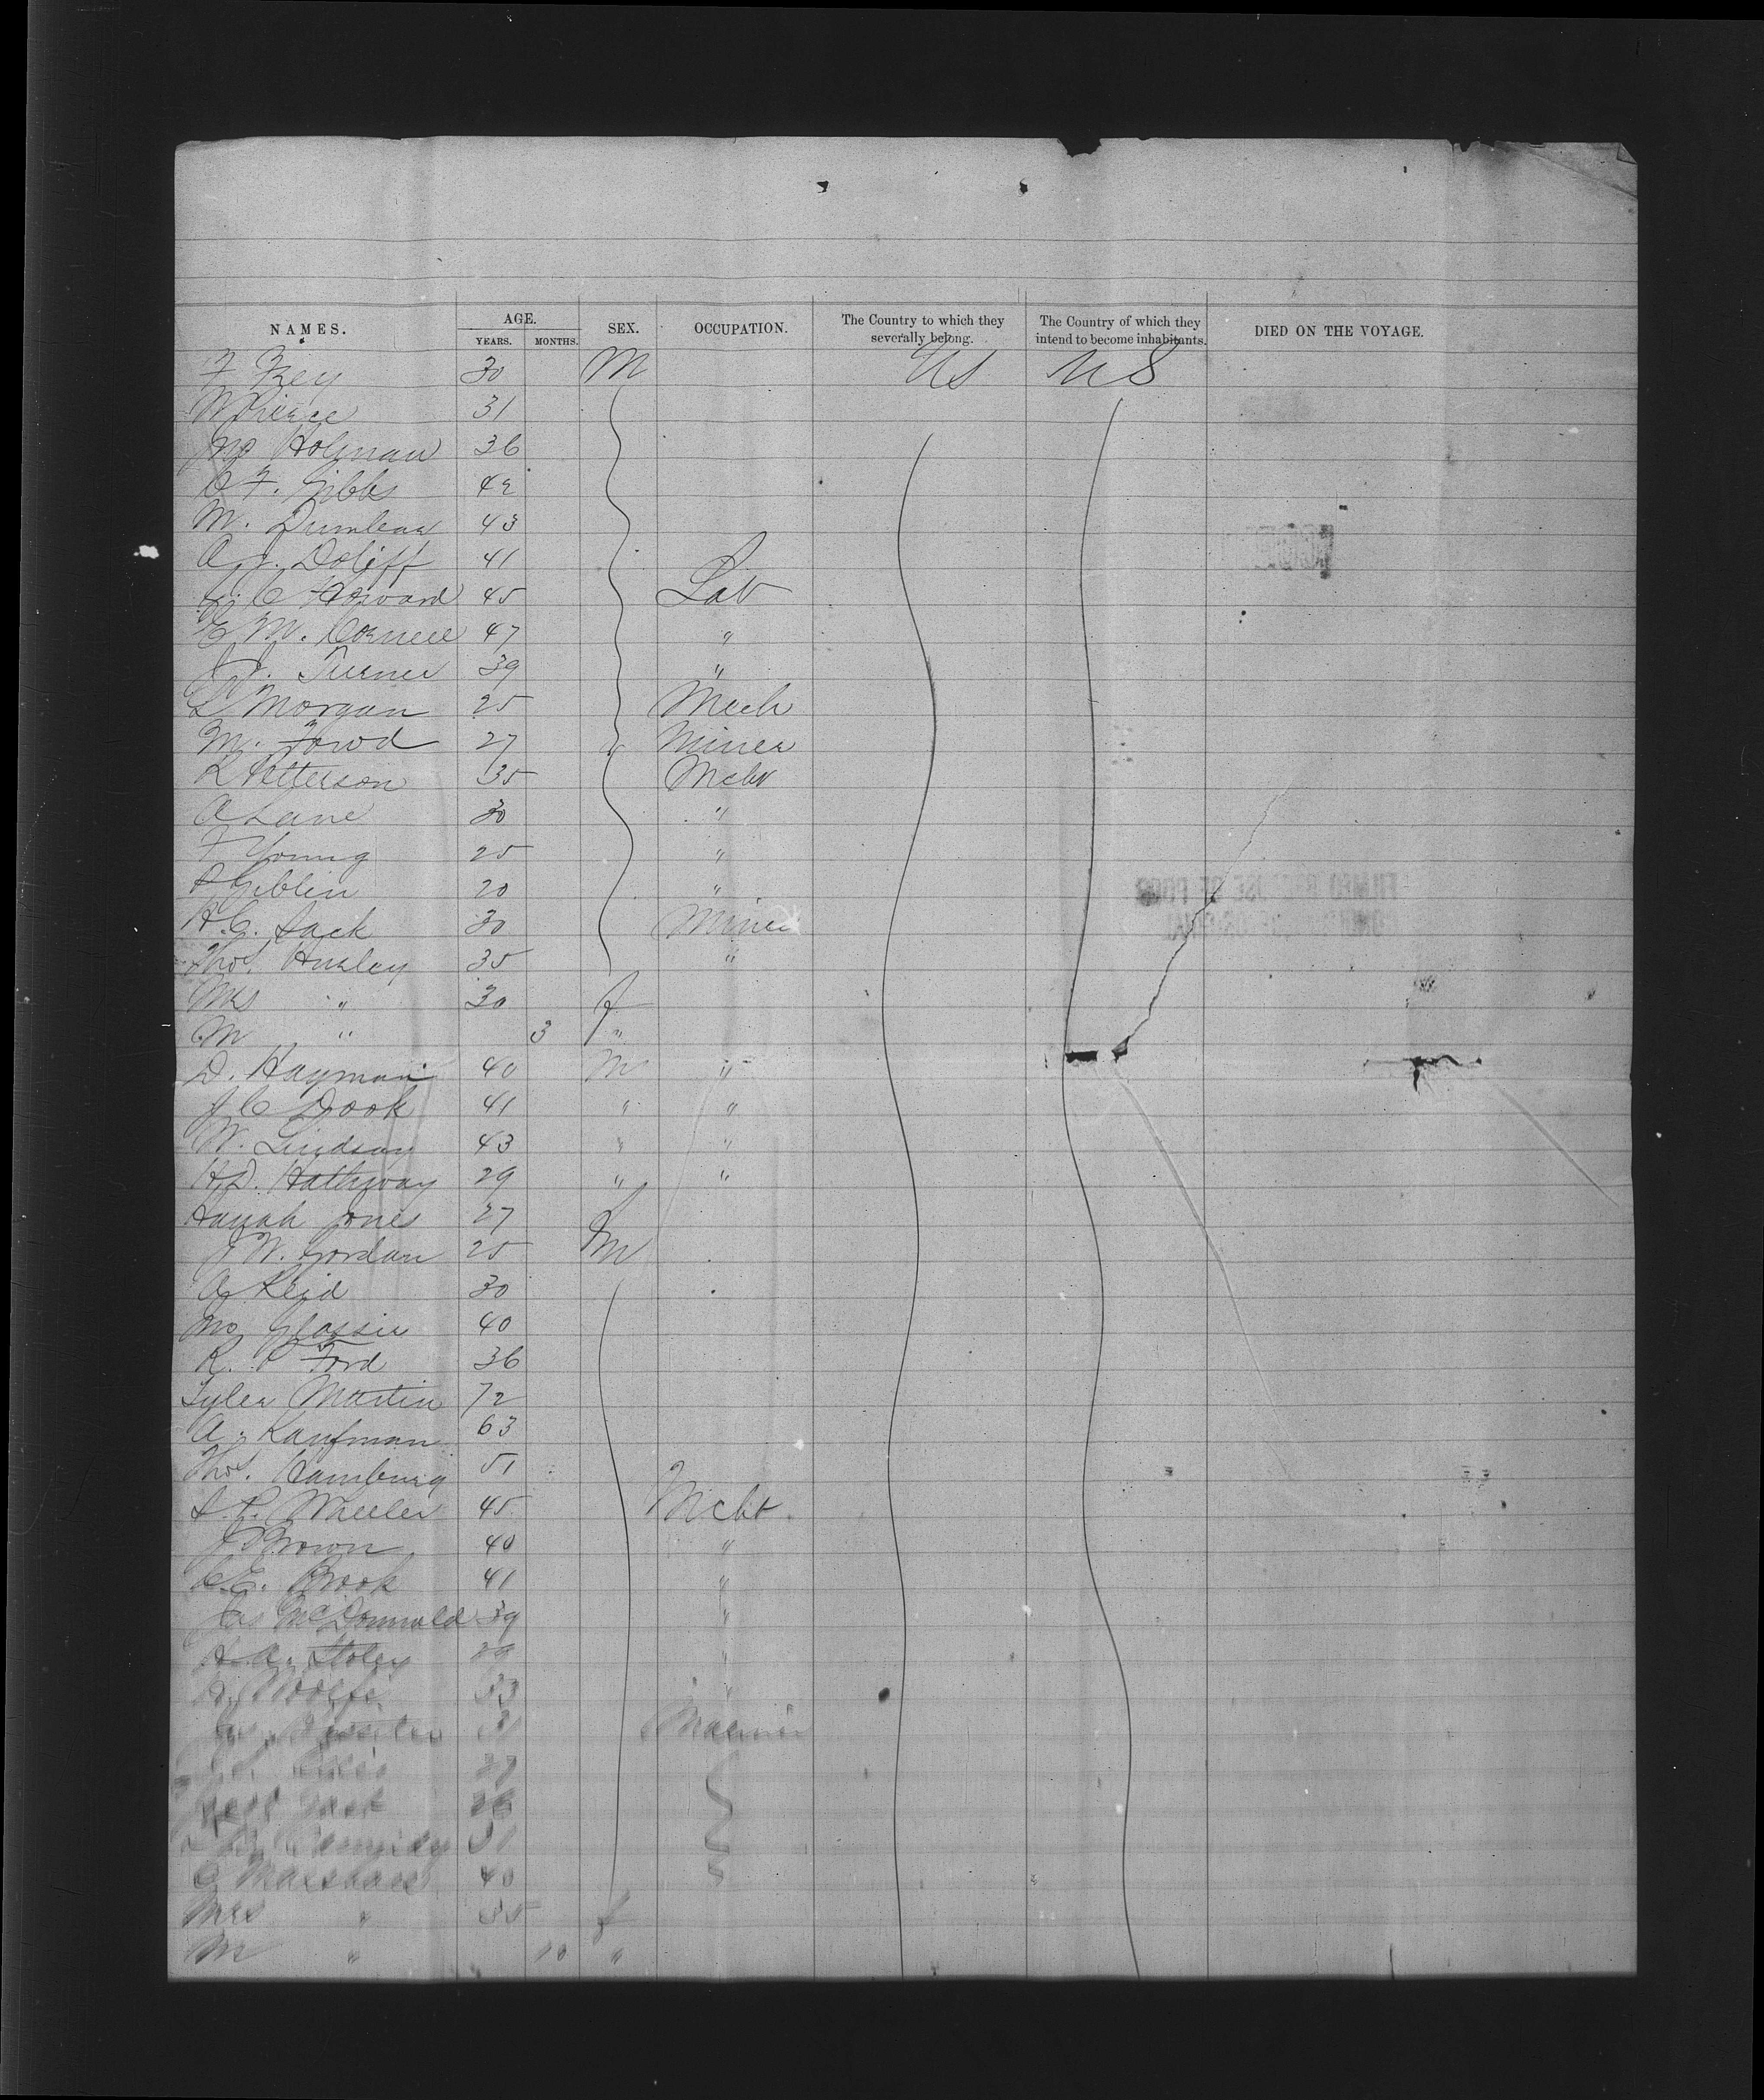 NAMES. AGE. YEARS. MONTHS. SEX. OCCUPATION. The Country to which they severally belong. The Country of which they intend to become inhabitants. DIED ON THE VOYAGE.
F 30 M US US
W Pierce 31
Jno Holman 36
F. Gibbs 42
M. 43
A. J. Doliff 41
C Howard 45 Lab
E M. Cornell 47 "
J. Turner 39 "
L Morgan 25 Mech
M. Fowd 27 Miner
R Petterson 35 Mcht
A Lane 30 "
F Young 25 "
P Giblin 20 "
H. C. Sack 30 Miner
Thos. Huxley 35 "
Mrs " 30 f
M " 3 "
D. Hayman 40 M "
J C Dook 41 " "
W. Lindsay 43 " "
H. D. Hathway 29 " "
Hanah Jones 27 f
J W. Gordan 25 M
A Reid 30
Jno Glassie 40
R. P Ford 36
Tyler Martin 72
A. Kaufman 63
Thos. Hamburg 51
S. P. Wheeler 45 Mcht.
J Brown 40 "
C. E. Brook 41 "
Jas McDonnald 39 "
H. A. Stoley 29 "
Woolfe 33 "
Jas. 31 Mariner
27
Jack
Kennedy 31
C Marshall 40
Mrs " 35 f
M " 10 "